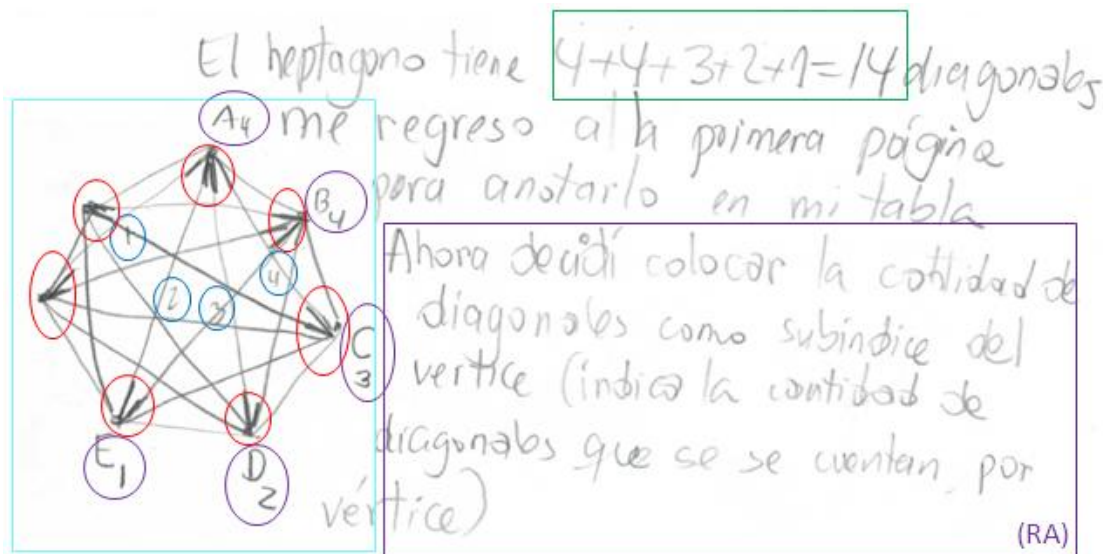 El heptagono tiene 4+4+3+2+1=14 diagonales
me regreso a la primera página
para anotarlo en mi tabla
A4
B4
1
4
2
3
C
3
E1
D2
Ahora decidí colocar la cantidad de
diagonales como subíndice del
vertice (indica la cantidad de
diagonales que se se cuentan por
vértice)
(RA)